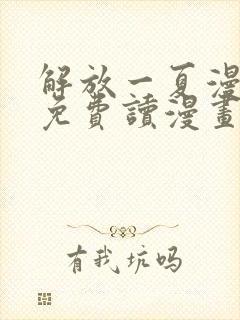 解放一夏漫
免費讀漫畫
有我坑吗